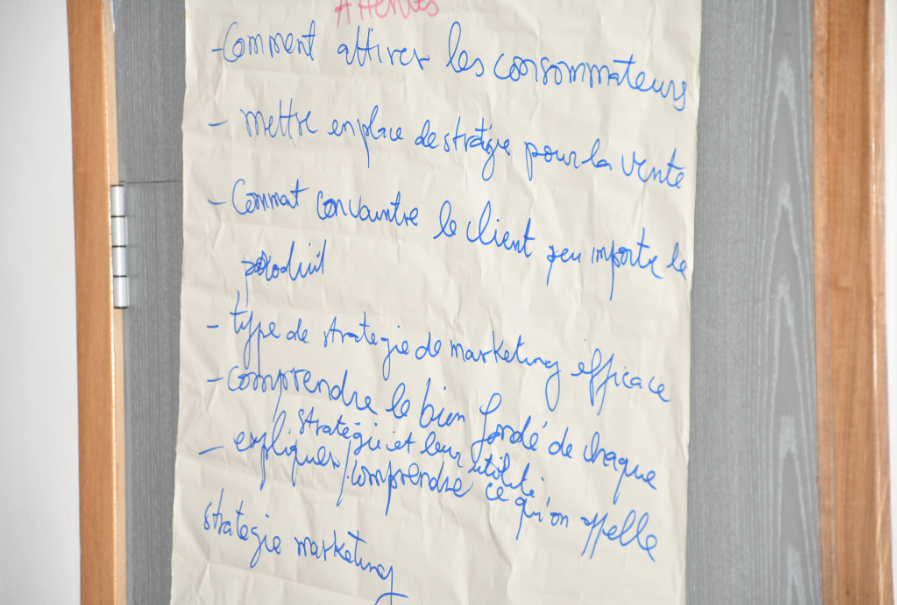 Attentes
-Comment attirer les consommateurs
- mettre en place de stratégie pour la vente
- Commat convaintre le client peu importe le
produit
- type de stratégie de marketing efficace
- comprendre le bien fondé de chaque
stratégie et leur utilité
- expliquer/comprendre ce qu'on appelle
stratégie marketing